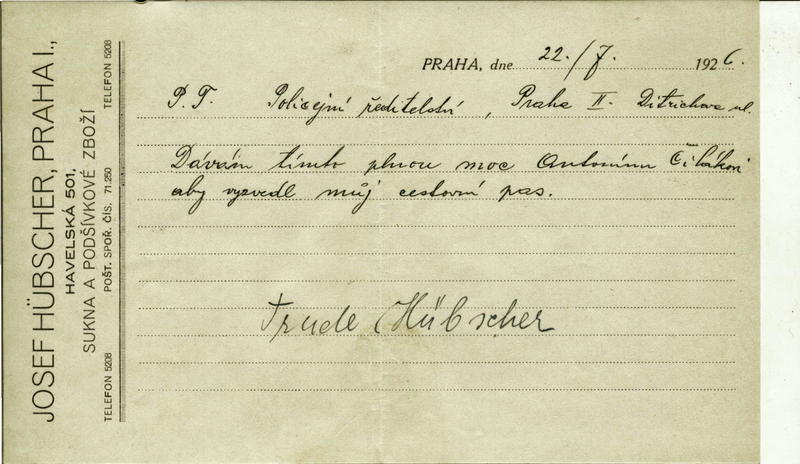 JOSEF HÜBSCHER, PRAHA I.,
HAVELSKÁ 501,
SUKNA A PODŠÍVKOVÉ ZBOŽÍ
TELEFON 5208 POŠT. SPOŘ. ČÍS. 71.250 TELEFON 5208
PRAHA, dne 22./7. 1926.
P. T. Policejní ředitelství, Praha II. Ditrichova ul.
Dávám tímto plnou moc Antonínu
aby vyzvedl můj cestovní pas.
Trude Hübscher